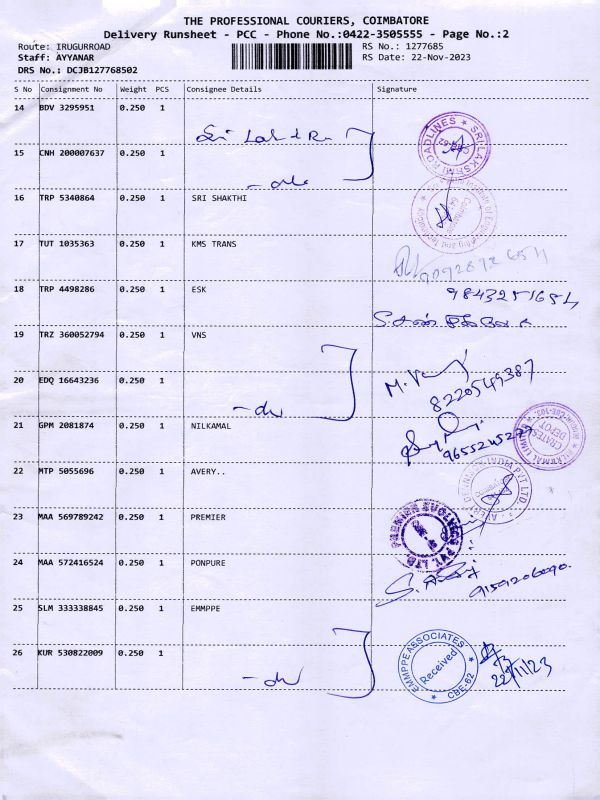 THE PROFESSIONAL COURIERS, COIMBATORE
Delivery Runsheet - PCC - Phone No.:0422-3505555 - Page No.:2
Route: IRUGURROAD
RS No.: 1277685
Staff: AYYANAR
RS Date: 22-Nov-2023
DRS No.: DCJB127768502
S No Consignment No Weight PCS Consignee Details Signature
14 BDV 3295951 0.250 1
15 CNH 200007637 0.250 1
SRI LAKSHMI ROADLINES
16 TRP 5340864 0.250 1 SRI SHAKTHI
17 TUT 1035363 0.250 1 KMS TRANS
18 TRP 4498286 0.250 1 ESK
9843251654
19 TRZ 360052794 0.250 1 VNS
20 EDQ 16643236 0.250 1
8220549387
21 GPM 2081874 0.250 1 NILKAMAL
9655245277
22 MTP 5055696 0.250 1 AVERY..
23 MAA 569789242 0.250 1 PREMIER
24 MAA 572416524 0.250 1 PONPURE
25 SLM 333338845 0.250 1 EMMPPE
26 KUR 530822009 0.250 1
EMMPPE ASSOCIATES
Received
CBE-62
22/11/23